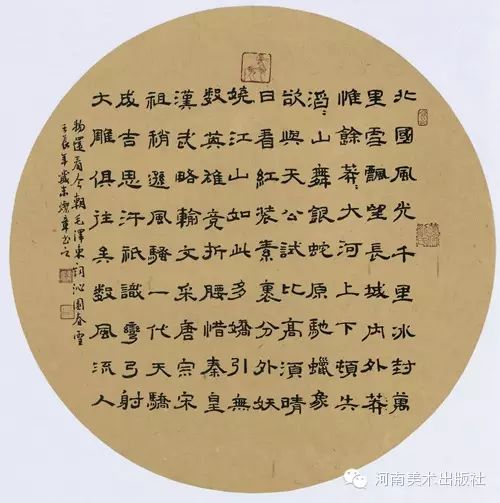 北國風光千里冰封萬
里雪飄望長城内外莽
惟餘莽〻大河上下頓失
滔〻山舞銀蛇原馳蠟象
欲與天公試比高須晴
日看紅装素裹分外妖
嬈江山如此多嬌引無
數英雄競折腰惜秦皇
漢武略輸文采唐宗宋
祖稍遜風騷一代天驕
成吉思汗祇識彎弓射
大雕俱往矣數風流人
物還看今朝毛澤東詞沁園春雪
壬辰年歲末
河南美术出版社